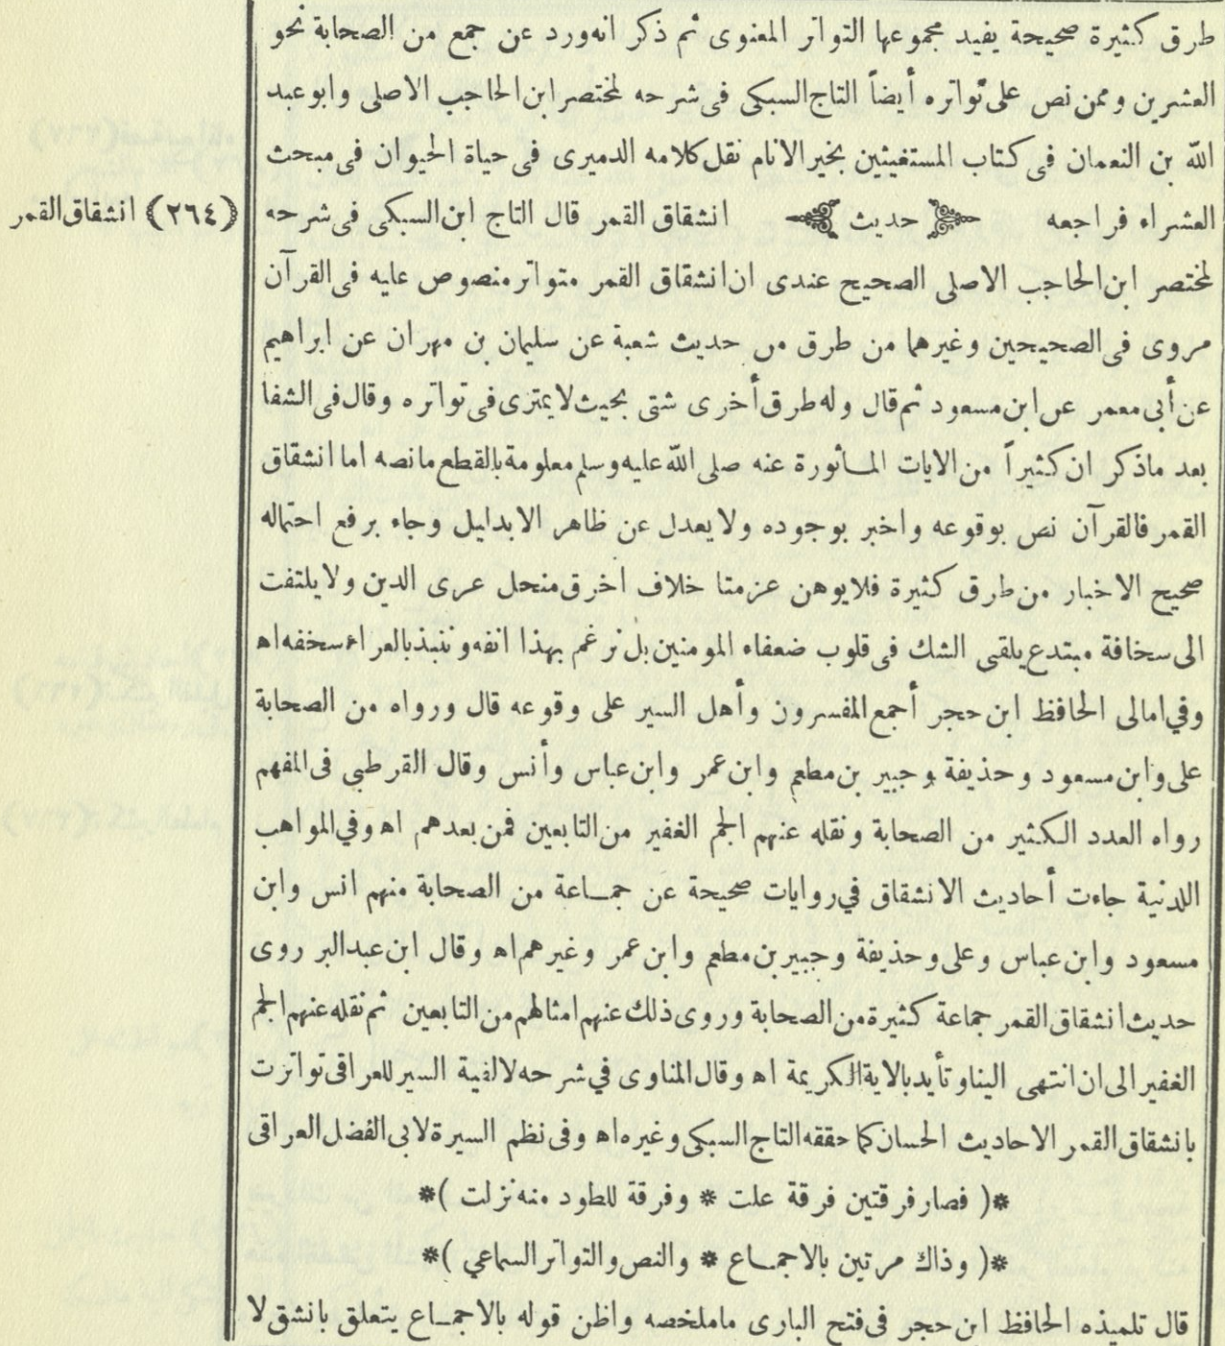 طرق كثيرة صحيحة يفيد مجموعها التواتر المعنوى ثم ذكر انه ورد عن جمع من الصحابة نحو
العشرين وممن نص على تواتره أيضاً التاج السبكى فى شرحه لمختصر ابن الحاجب الاصلى وابو عبد
الله بن النعمان فى كتاب المستغيثين بخير الانام نقل كلامه الدميرى فى حياة الحيوان فى مبحث
العشراء فراجعه حديث انشقاق القمر قال التاج ابن السبكى فى شرحه
(٢٦٤) انشقاق القمر
لمختصر ابن الحاجب الاصلى الصحيح عندى ان انشقاق القمر متواتر منصوص عليه فى القرآن
مروى فى الصحيحين وغيرهما من طرق من حديث شعبة عن سليمان بن مهران عن ابراهيم
عن أبى معمر عن ابن مسعود ثم قال وله طرق أخرى شتى بحيث لا يمترى فى تواتره وقال فى الشفا
بعد ماذكر ان كثيراً من الايات المأثورة عنه صلى الله عليه وسلم معلومة بالقطع مانصه اما انشقاق
القمر فالقرآن نص بوقوعه واخبر بوجوده ولا يعدل عن ظاهر الابدليل وجاء برفع احتماله
صحيح الاخبار من طرق كثيرة فلا يوهن عزمتا خلاف اخرق منحل عرى الدين ولا يلتفت
الى سخافة مبتدع يلقى الشك فى قلوب ضعفاء المومنين بل نرغم بهذا انفه وننبذ بالعراء سخفه اه
وفي امالى الحافظ ابن حجر أجمع المفسرون وأهل السير على وقوعه قال ورواه من الصحابة
على وابن مسعود وحذيفة وجبير بن مطعم وابن عمر وابن عباس وأنس وقال القرطبى فى المفهم
رواه العدد الكثير من الصحابة ونقله عنهم الجم الغفير من التابعين فمن بعدهم اه وفي المواهب
اللدنية جاءت أحاديث الانشقاق في روايات صحيحة عن جماعة من الصحابة منهم انس وابن
مسعود وابن عباس وعلى وحذيفة وجبير بن مطعم وابن عمر وغيرهم اه وقال ابن عبد البر روى
حديث انشقاق القمر جماعة كثيرة من الصحابة وروى ذلك عنهم امثالهم من التابعين ثم نقله عنهم الجم
الغفير الى ان انتهى الينا وتأيد بالاية الكريمة اه وقال المناوى في شرحه لالفية السير للعراقى تواترت
بانشقاق القمر الاحاديث الحسان كما حققه التاج السبكى وغيره اه وفى نظم السيرة لابى الفضل العراقى
*( فصار فرقتين فرقة علت * وفرقة للطود منه نزلت )*
*( وذاك مرتين بالاجماع * والنص والتواتر السماعي )*
قال تلميذه الحافظ ابن حجر فى فتح البارى ماملخصه واظن قوله بالاجماع يتعلق بانشق لا